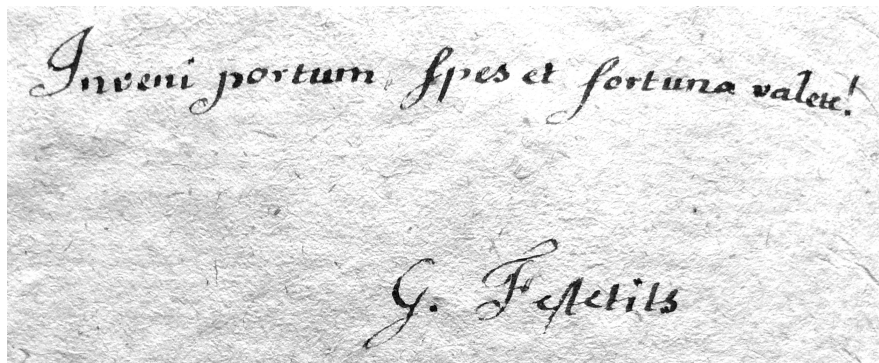 Inveni portum Spes et fortuna valete!
G. Festetits